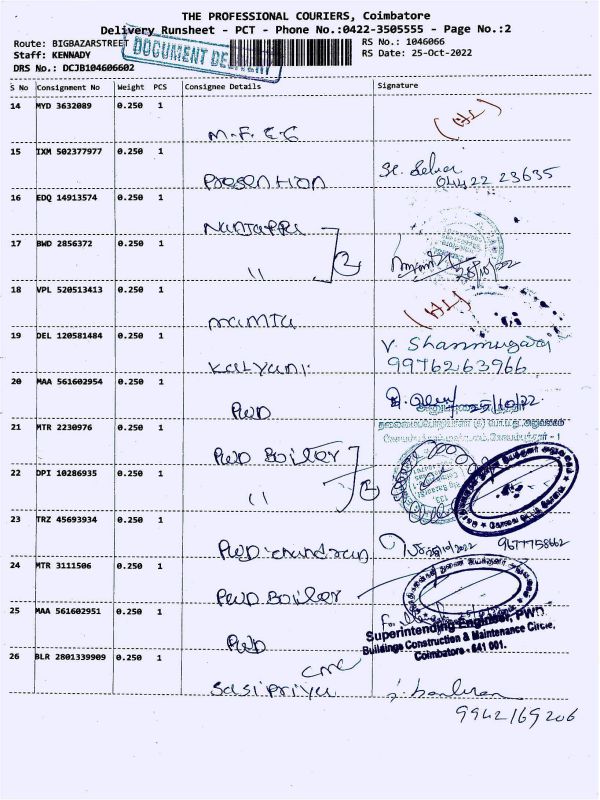 THE PROFESSIONAL COURIERS, Coimbatore
Delivery Runsheet - PCT - Phone No.:0422-3505555 - Page No.:2
Route: BIGBAZARSTREET
RS No.: 1046066
Staff: KENNADY
RS Date: 25-Oct-2022
DRS No.: DCJB104606602
DOCUMENT DELIVERY
S No Consignment No Weight PCS Consignee Details Signature
14 MYD 3632089 0.250 1
M.F.E.G
15 IXM 502377977 0.250 1
16 EDQ 14913574 0.250 1
17 BWD 2856372 0.250 1
" 2
25/10/22
18 VPL 520513413 0.250 1
mamta
19 DEL 120581484 0.250 1
Kalyani V. Shanmugaraj
9976263966
20 MAA 561602954 0.250 1
PWD 25/10/22
21 MTR 2230976 0.250 1
PWD Boiler
22 DPI 10286935 0.250 1
" 2
23 TRZ 45693934 0.250 1
PWD. chandran 9677758662
24 MTR 3111506 0.250 1
PWD Boiler
25 MAA 561602951 0.250 1
PWD
Superintending Engineer, PWD.
Buildings Construction & Maintenance Circle,
Coimbatore - 641 001.
26 BLR 2801339909 0.250 1
CMC
Sasipriya
9942169206